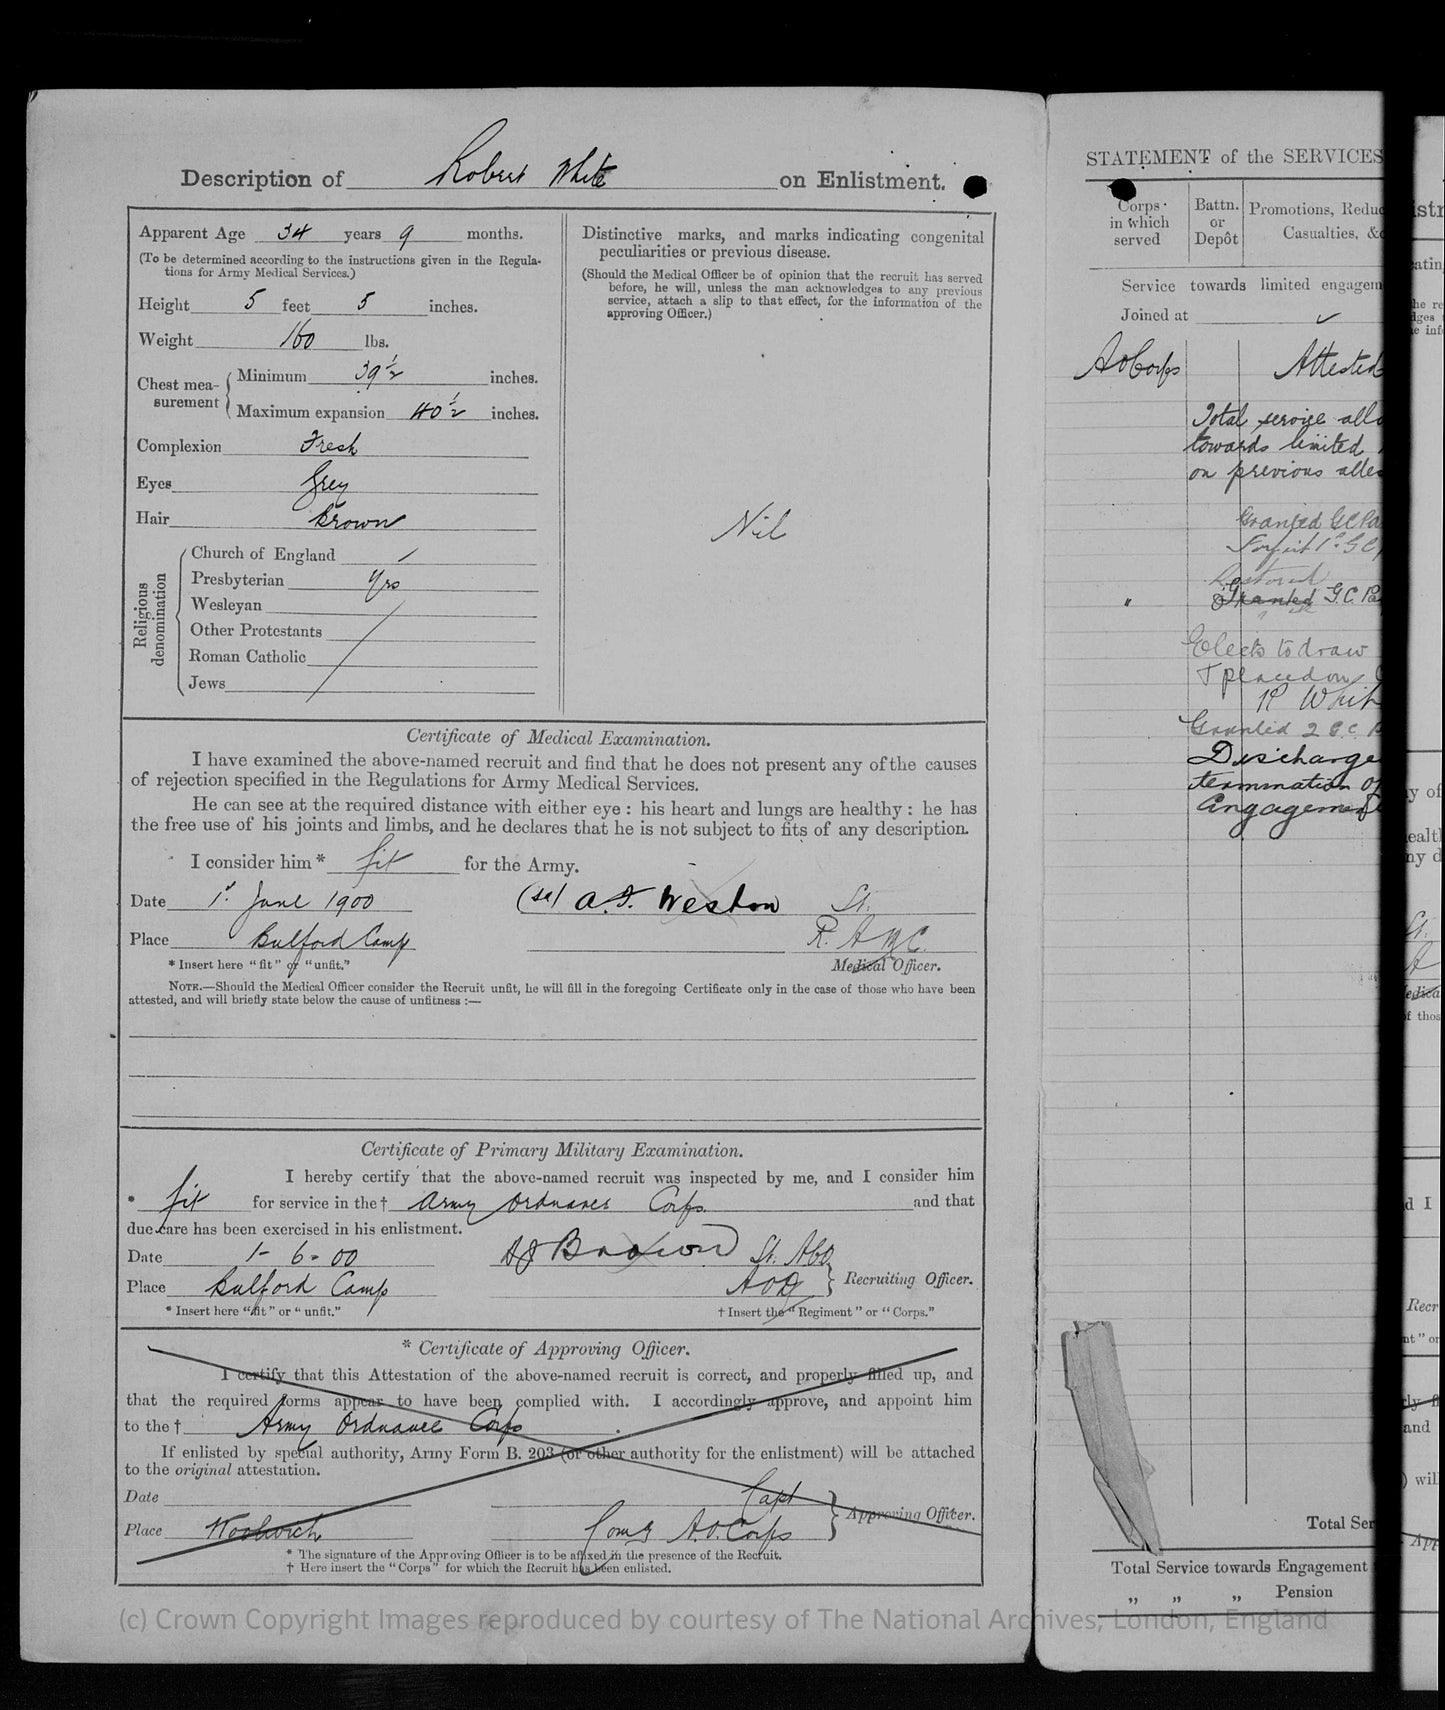 Description of Robert White on Enlistment.
Apparent Age 34 years 9 months.
(To be determined according to the instructions given in the Regula-
tions for Army Medical Services.)
Height 5 feet 5 inches.
Weight 160 lbs.
Chest mea-
surement
Minimum 39½ inches.
Maximum expansion 40½ inches.
Complexion Fresh
Eyes Grey
Hair Brown
Religious
denomination
Church of England
Presbyterian Yes
Wesleyan
Other Protestants
Roman Catholic
Jews
Distinctive marks, and marks indicating congenital
peculiarities or previous disease.
(Should the Medical Officer be of opinion that the recruit has served
before, he will, unless the man acknowledges to any previous
service, attach a slip to that effect, for the information of the
approving Officer.)
Nil
Certificate of Medical Examination.
I have examined the above-named recruit and find that he does not present any of the causes
of rejection specified in the Regulations for Army Medical Services.
He can see at the required distance with either eye : his heart and lungs are healthy : he has
the free use of his joints and limbs, and he declares that he is not subject to fits of any description.
I consider him * fit for the Army.
Date 1st June 1900 A. F. Weston Lt.
Place Bulford Camp R. A M C.
* Insert here "fit" or "unfit." Medical Officer.
NOTE.—Should the Medical Officer consider the Recruit unfit, he will fill in the foregoing Certificate only in the case of those who have been
attested, and will briefly state below the cause of unfitness :—
Certificate of Primary Military Examination.
I hereby certify that the above-named recruit was inspected by me, and I consider him
* fit for service in the † Army Ordnance Corps and that
due care has been exercised in his enlistment.
Date 1- 6- 00 Brown Lt.
Place Bulford Camp AOD Recruiting Officer.
* Insert here "fit" or "unfit." † Insert the "Regiment" or "Corps."
* Certificate of Approving Officer.
I certify that this Attestation of the above-named recruit is correct, and properly filled up, and
that the required forms appear to have been complied with. I accordingly approve, and appoint him
to the † Army Ordnance Corps
If enlisted by special authority, Army Form B. 203 (or other authority for the enlistment) will be attached
to the original attestation.
Date Capt
Approving Officer.
Place Woolwich Comg A.O. Corps
* The signature of the Approving Officer is to be affixed in the presence of the Recruit.
† Here insert the "Corps" for which the Recruit has been enlisted.
STATEMENT of the SERVICES
Corps
in which
served
Battn.
or
Depôt
Promotions, Reduc
Casualties, &c
Service towards limited engagem
Joined at
AO Corps Attested
Total service allo
towards limited
on previous attes
Granted GC Pa
Forfeit 1st GC
Restored
Granted G.C. Pa
Elects to draw
& placed on
R Whit
Granted 2 G C P
Discharge
termination of
Engagement
Total Ser
Total Service towards Engagement
„ „ „ Pension
(c) Crown Copyright Images reproduced by courtesy of The National Archives, London, England